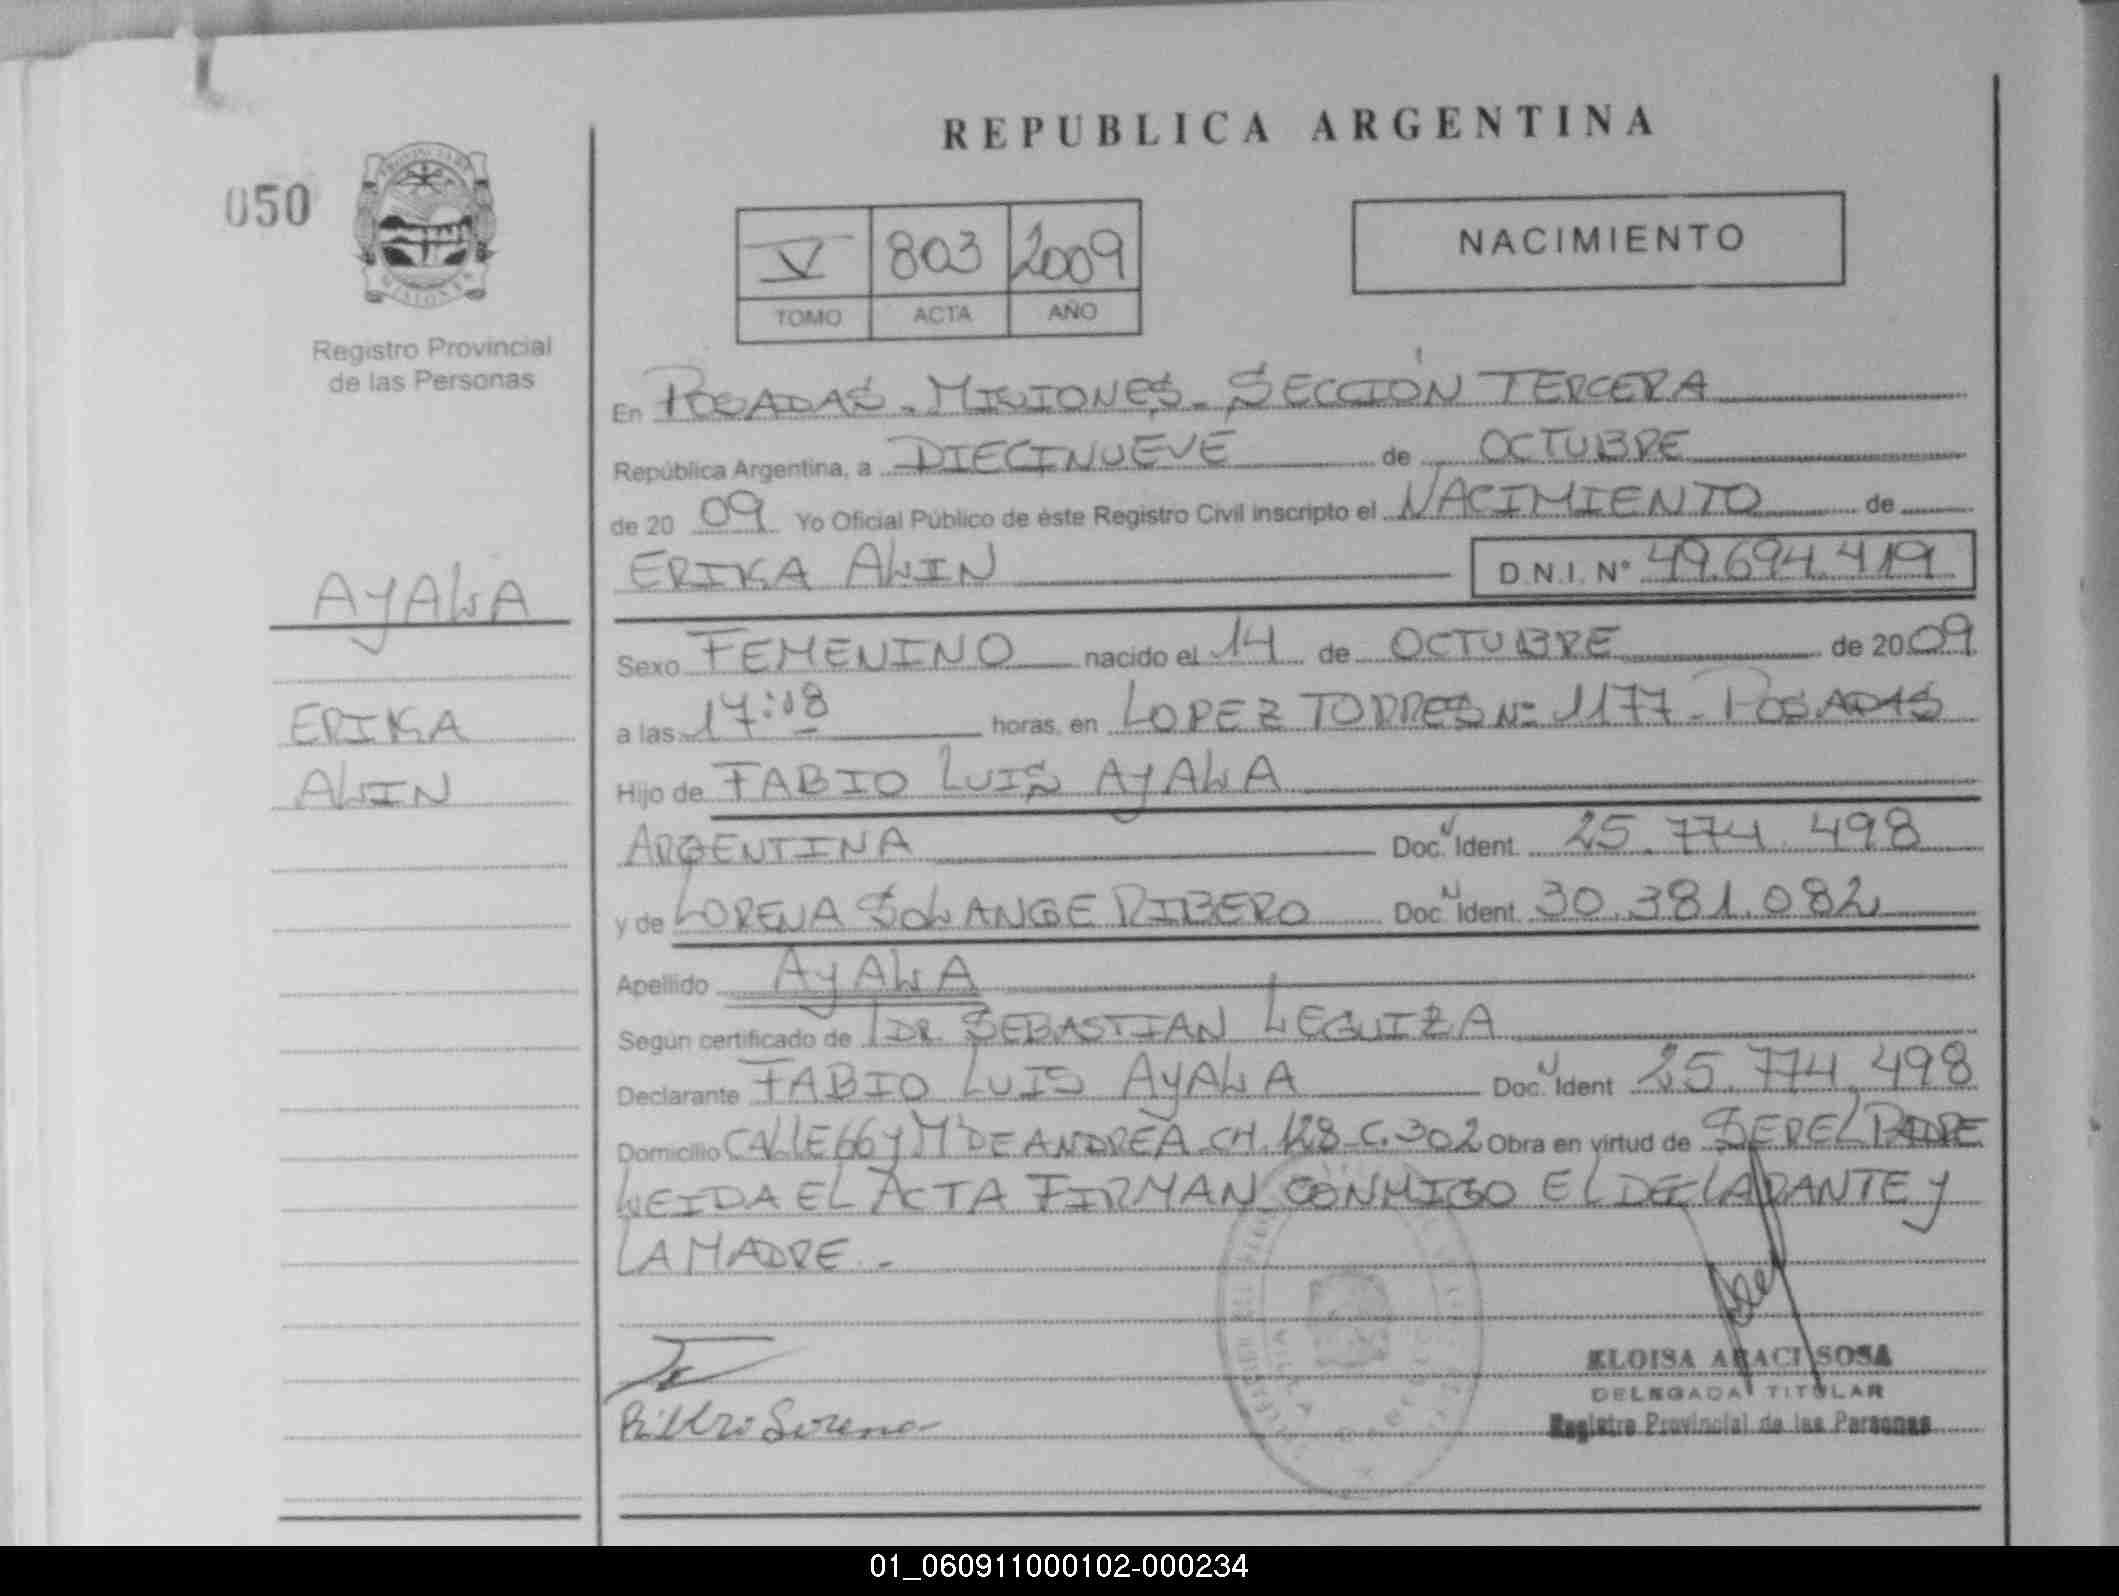 REPUBLICA ARGENTINA
050
PROVINCIA DE
MISIONES
Registro Provincial
de las Personas
V 803 2009
TOMO ACTA AÑO
NACIMIENTO
En POSADAS - MISIONES - SECCIÓN TERCERA
República Argentina, a DIECINUEVE de OCTUBRE
de 20 09 Yo Oficial Público de éste Registro Civil inscripto el NACIMIENTO de
ERIKA AILIN D.N.I. N° 49.694.419
AYALA
ERIKA
AILIN
Sexo FEMENINO nacido el 14 de OCTUBRE de 2009
a las 17:18 horas, en LOPEZ TORRES Nº 1177 - POSADAS
Hijo de FABIO LUIS AYALA
ARGENTINA Doc. Ident. 25.774.498
y de LORENA SOLANGE RIBERO Doc. Ident. 30.381.082
Apellido AYALA
Según certificado de DR. SEBASTIAN LEGUIZA
Declarante FABIO LUIS AYALA Doc. Ident 25.774.498
Domicilio CALLE 66 Y Mº DE ANDREA CH. 128 - C. 302 Obra en virtud de SER EL PADRE
LEIDA EL ACTA FIRMAN CONMIGO EL DECLARANTE Y
LA MADRE.-
ELOISA ARACI SOSA
DELEGADA TITULAR
Registro Provincial de las Personas
01_060911000102-000234